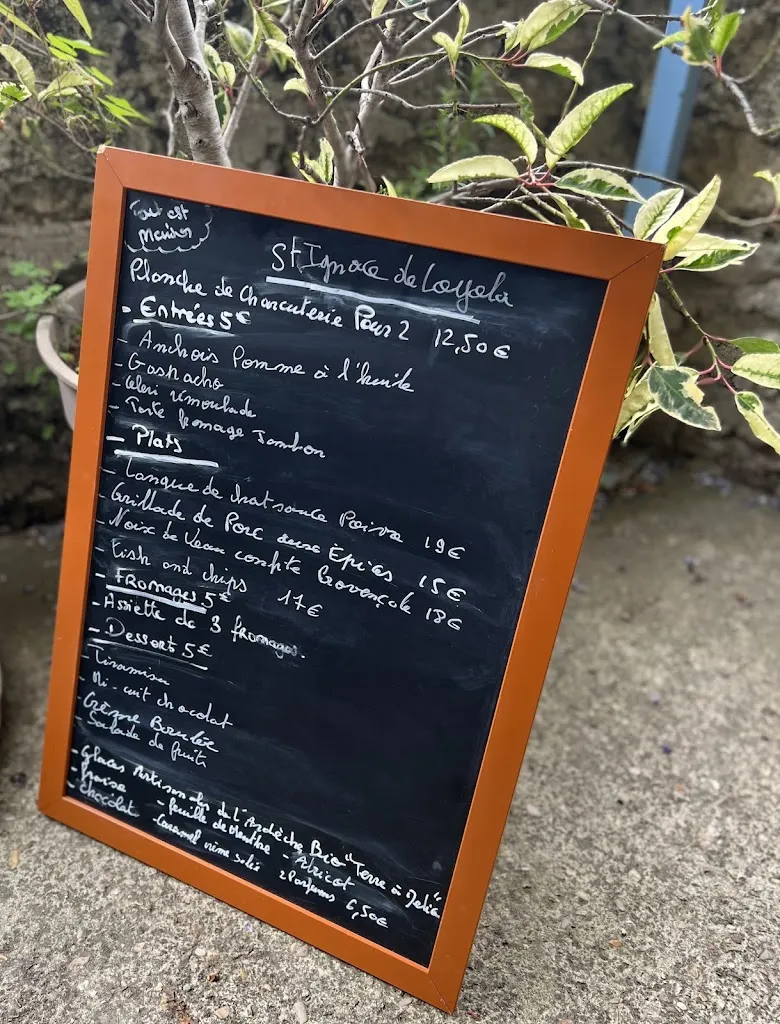 Tout est
Maison
St Ignace de Loyola
Planche de Charcuterie Pour 2 12,50€
- Entrées 5€
- Anchois Pomme à l'huile
- Gaspacho
- Céleri rémoulade
- Tarte fromage Jambon
- Plats
- Langue de chat sauce Poivre 19€
- Grillade de Porc aux Épices 15€
- Noix de Veau confite Provençale 18€
- Fish and chips 17€
- FROMAGES 5€
- Assiette de 3 fromages.
- Desserts 5€
- Tiramisu
- Mi-cuit chocolat
Crème Brulée
- Salade de fruits
- Glaces Artisanales de l'Ardèche Bio "Terre à
- fraise - feuille de Menthe - Abricot
- chocolat - Caramel 2 Parfums 6,50€